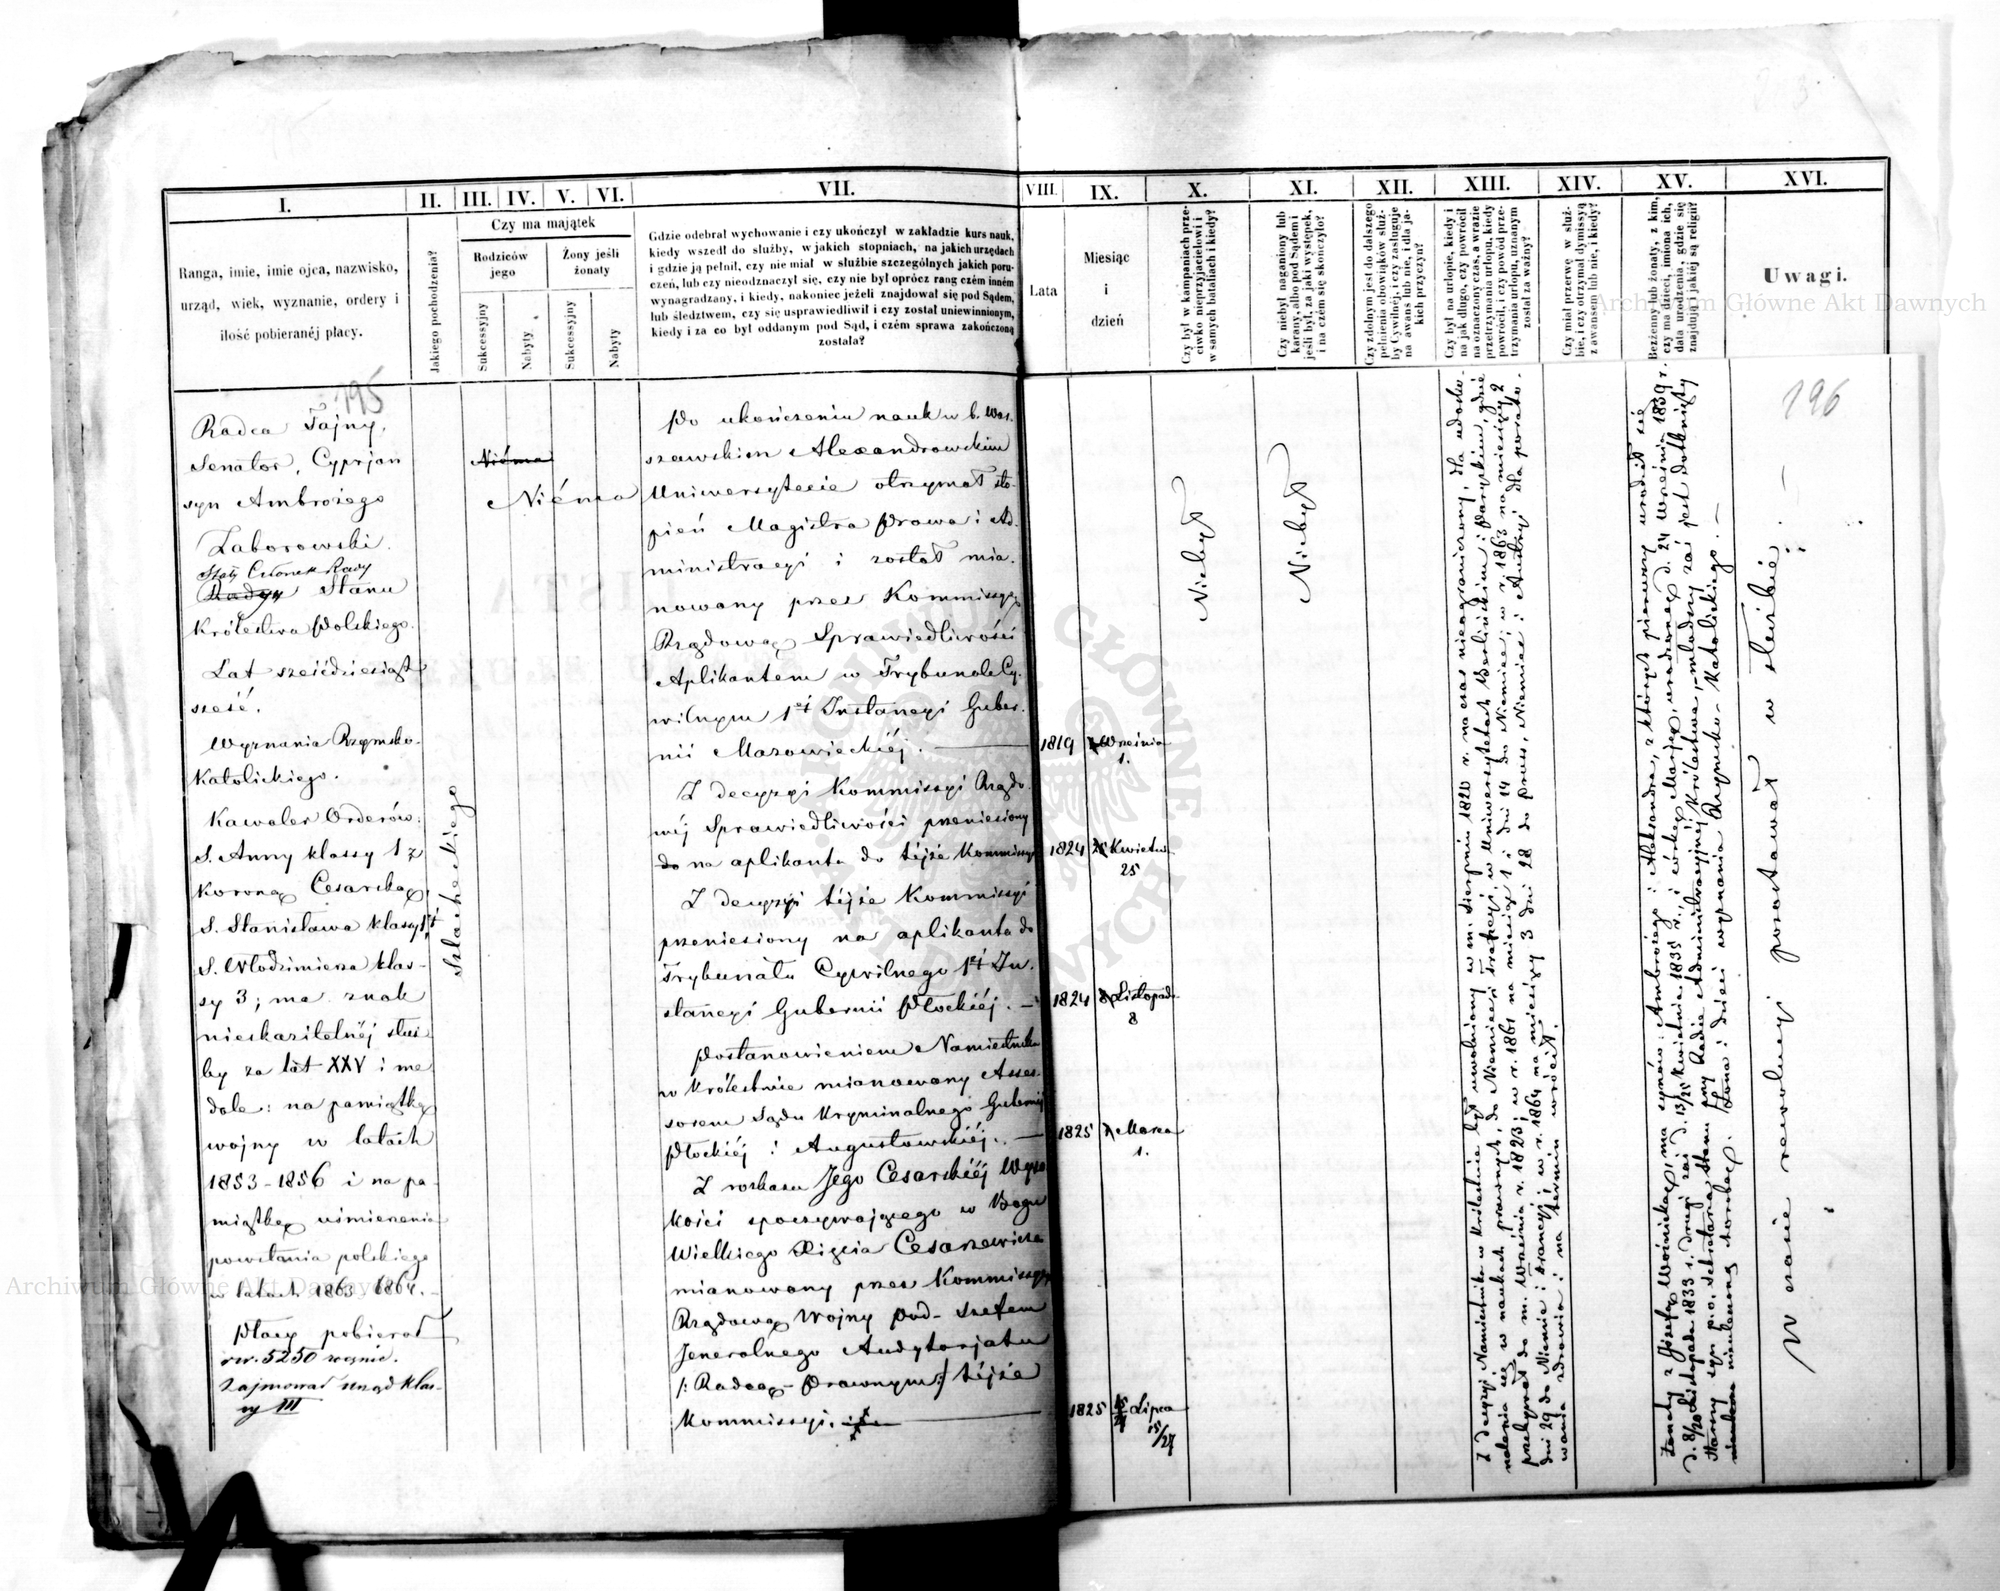 I.
II.
III.
IV.
V.
VI.
VII.
VIII.
IX.
X.
XI.
XII.
XIII.
XIV.
XV.
XVI.
Ranga, imie, imie ojca, nazwisko,
urząd, wiek, wyznanie, ordery i
ilość pobieranéj płacy.
Jakiego pochodzenia?
Czy ma majątek
Rodziców
jego
Żony jeśli
żonaty
Sukcessyjny
Nabyty
Sukcessyjny
Nabyty
Gdzie odebrał wychowanie i czy ukończył w zakładzie kurs nauk,
kiedy wszedł do służby, w jakich stopniach, na jakich urzędach
i gdzie ją pełnił, czy nie miał w służbie szczególnych jakich poru-
czeń, lub czy nieodznaczył się, czy nie był oprócz rang czém inném
wynagradzany, i kiedy, nakoniec jeżeli znajdował się pod Sądem,
lub śledztwem, czy się usprawiedliwił i czy został uniewinnionym,
kiedy i za co był oddanym pod Sąd, i czém sprawa zakończoną
została?
Lata
Miesiąc
i
dzień
Czy był w kampaniach prze-
ciwko nieprzyjacielowi i
w samych bataliach i kiedy?
Czy niebył naganiony lub
karany, albo pod Sądem i
jeśli był, za jaki występek,
i na czém się skończyło?
Czy zdolnym jest do dalszego
pełnienia obowiąków służ-
by Cywilnéj, i czy zasługuje
na awans lub nie, i dla ja-
kich przyczyn?
Czy był na urlopie, kiedy i
na jak długo, czy powrócił
na oznaczony czas, a w razie
przetrzymania urlopu, kiedy
powrócił, i czy powód prze-
trzymania urlopu, uznanym
został za ważny?
Czy miał przerwę w służ-
bie, i czy otrzymał dymissyą
z awansem lub nie, i kiedy?
Bezżenny lub żonaty, z kim,
czy ma dzieci, imiona ich,
data urodzenia, gdzie się
znajdują i jakiéj są religii?
Uwagi.
195
Radca Tajny,
Senator, Cyprjan
syn Ambrożego
Zaborowski.
Stały Członek Rady
Radzy Stanu
Królestwa Polskiego.
Lat sześćdziesiąt
sześć.
Wyznania Rzymsko-
Katolickiego.
Kawaler Orderów:
S. Anny klassy 1 z
Koroną Cesarską,
S. Stanisława klassy 1éj
S. Włodzimierza klas-
sy 3; ma znak
nieskazitelnéj służ-
by za lat XXV i me
dale: na pamiątkę
wojny w latach
1853-1856 i na pa-
miątkę uśmierzenia
powstania polskiego
w latach 1863 1864.
Płacy pobierał
rsr. 5250 rocznie.
Zajmował urząd klas-
sy III
Szlacheckiego
Niéma
Niéma
Po ukończeniu nauk w b. War-
szawskim Alexandrowskim
Uniwersytecie otrzymał sto-
pień Magistra Prawa i Ad-
ministracyi i został mia-
nowany przez Kommissyą
Rządową Sprawiedliwości
Aplikantem w Trybunale Cy-
wilnym 1éj Instancyi Guber-
nii Mazowieckiéj.
1819
Września
1.
Z decyzyi Kommissyi Rządo-
wéj Sprawiedliwości przeniesiony
do na aplikanta do téjże Kommissyi
1824
25 Kwietnia
25
Z decyzyi téjże Kommissyi
przeniesiony na aplikanta do
Trybunału Cywilnego 1éj In-
stancyi Gubernii Płockiéj.
1824
8 Listopada
8
Postanowieniem Namiestnika
w Królestwie mianowany Asses-
sorem Sądu Kryminalnego Gubernij
Płockiéj i Augustowskiéj.
1825
1 Marca
1.
Z rozkazu Jego Cesarskiéj Wyso
kości spoczywającego w Bogu
Wielkiego Xięcia Cesarzewicza
mianowany przez Kommissyą
Rządową Wojny Pod-Szefem
Jeneralnego Audytorjatu
/: Radcą-Prawnym :/ téjże
Kommissyi.
1825
15/27 Lipca
15/27
Niebył
Niebył
Z decyzyi Namiestnika w Królestwie był uwolniony w m. Sierpniu 1820 r. na czas nieograniczony, dla udosko-
nalenia się w naukach prawnych, do Niemiec i Francyi, w Uniwersytetach Berlińskim i Paryzkim, gdzie
przebywał do m. Września r. 1823; w r. 1861 na miesiąc 1 i dni 14 do Niemiec; w r. 1863 na miesięcy 2
dni 29 do Niemiec i Francyi; w r. 1864 na miesięcy 3 dni 28 do Prus, Niemiec i Austryi dla porato-
wania zdrowia i na termin wrócił.
Żonaty z Józefą Woźnicką, ma synów: Ambrożego i Aleksandra, z których pierwszy urodził się
d. 8/20 Listopada 1833 r. drugi zaś d. 13/25 Kwietnia 1835 r., i córkę Marję, urodzoną d. 24 Września 1839 r.
Starszy syn p. o. Sekretarza Stanu przy Radzie Administracyjnéj Królestwa, młodszy zaś jest dotknięty
nieuleczoną chorobą. Żona i dzieci wyznania Rzymsko-Katolickiego.
196
W czasie rewolucyi pozostawał w służbie.
Archiwum Główne Akt Dawnych
Archiwum Główne Akt Dawnych
ARCHIWUM GŁÓWNE AKT DAWNYCH